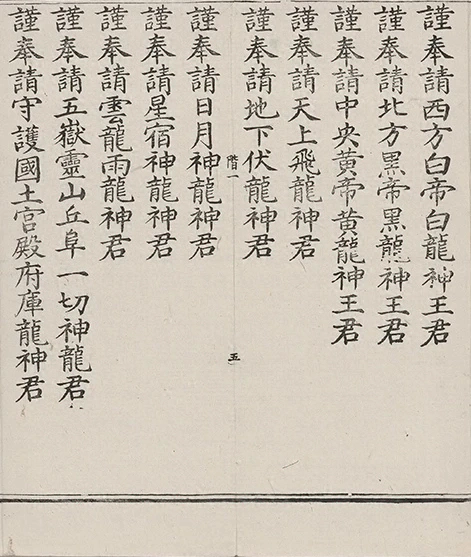 謹奉請西方白帝白龍神王君
謹奉請北方黑帝黑龍神王君
謹奉請中央黄帝黄龍神王君
謹奉請天上飛龍神君
謹奉請地下伏龍神君
階一
五
謹奉請日月神龍神君
謹奉請星宿神龍神君
謹奉請雲龍雨龍神君
謹奉請五嶽靈山丘阜一切神龍君
謹奉請守護國土宮殿府庫龍神君